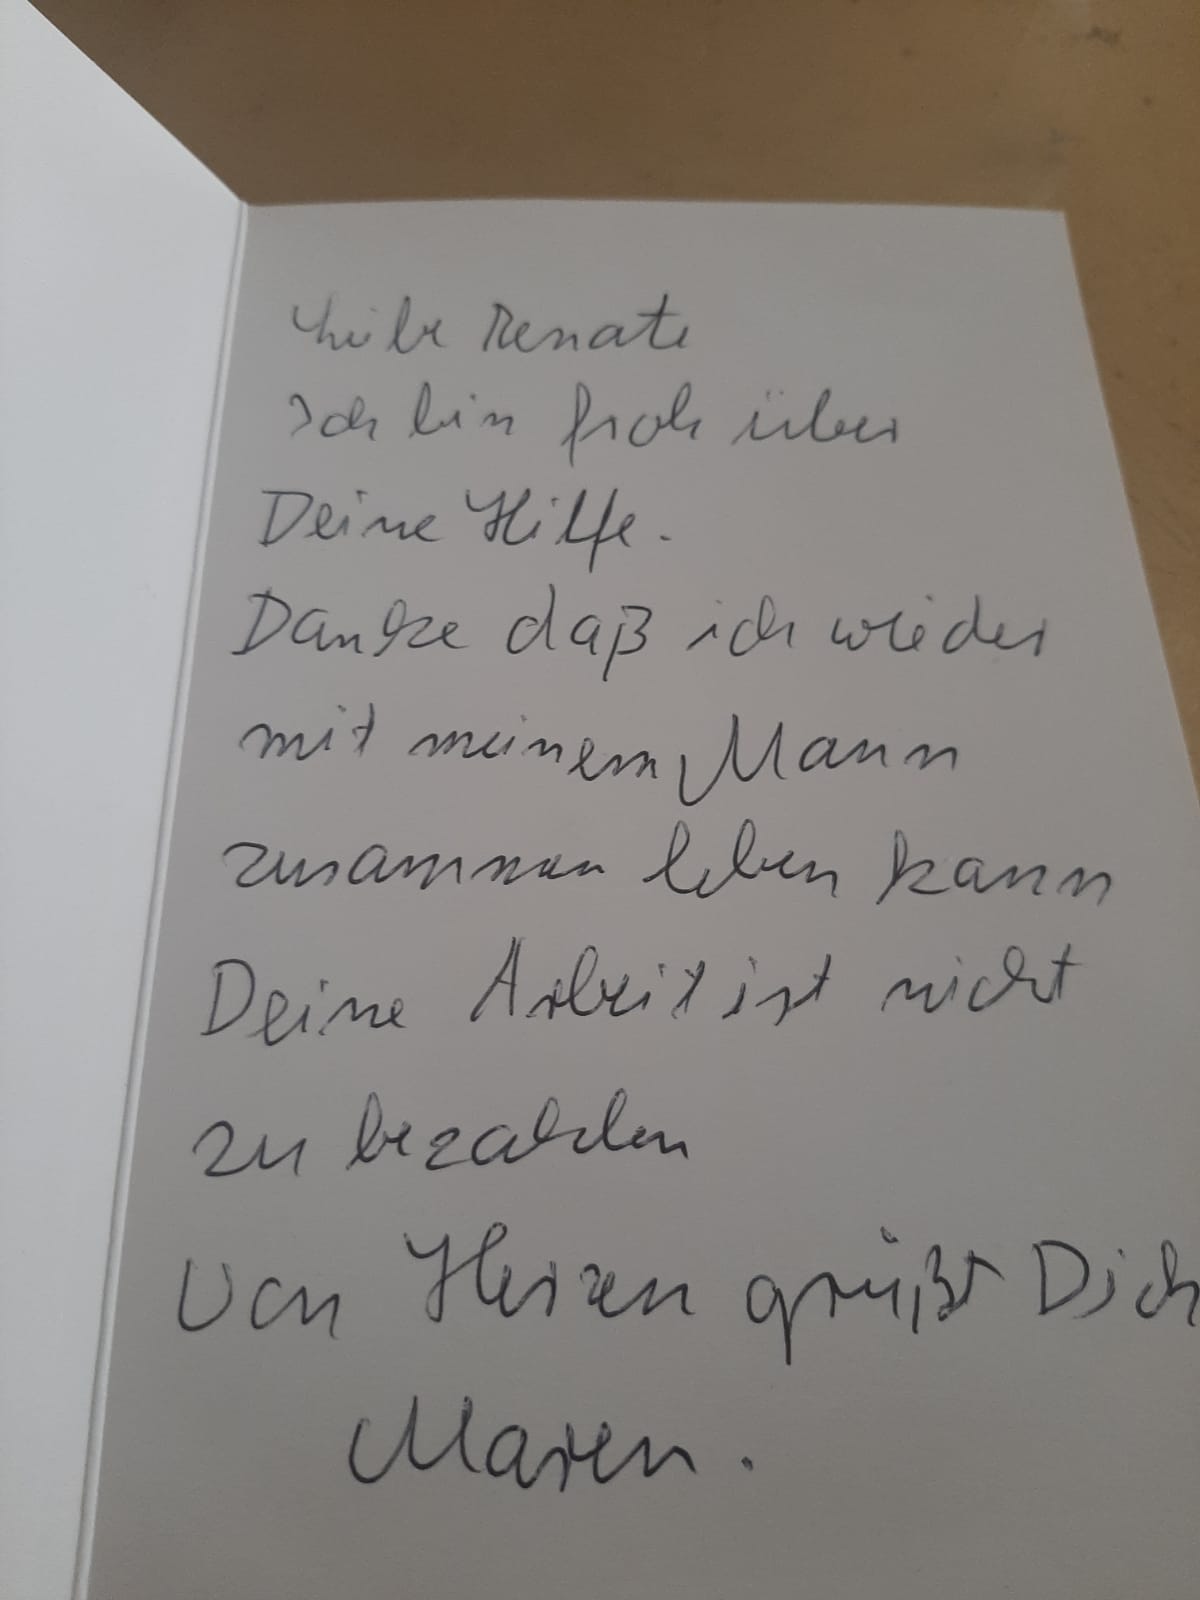 Liebe Renate
Ich bin froh über
Deine Hilfe.
Danke daß ich wieder
mit meinem Mann
zusammen leben kann
Deine Arbeit ist nicht
zu bezahlen
Von Herzen grüßt Dich
Maren.